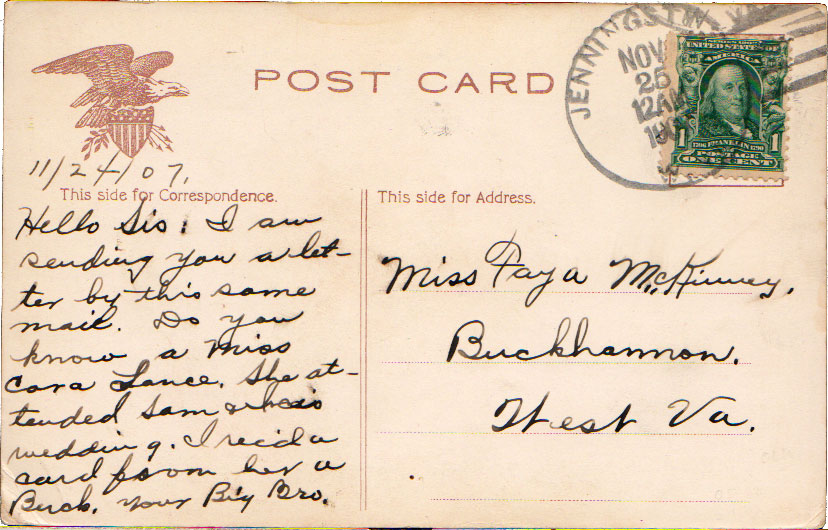 POST CARD
JENNINGSTON,
NOV
25
12AM
190
SERIES 1902
UNITED STATES OF
AMERICA
1 1
1706 FRANKLIN 1790
POSTAGE
ONE CENT
11/24/07.
This side for Correspondence.
Hello Sis: I am
sending you a let-
ter by this same
mail. Do you
know a Miss
Cora Lance. She at-
tended Sam &
wedding. I rec'd a
card from her a
Buck. Your Big Bro.
This side for Address.
Miss Faya McKinney,
Buckhannon.
West Va.